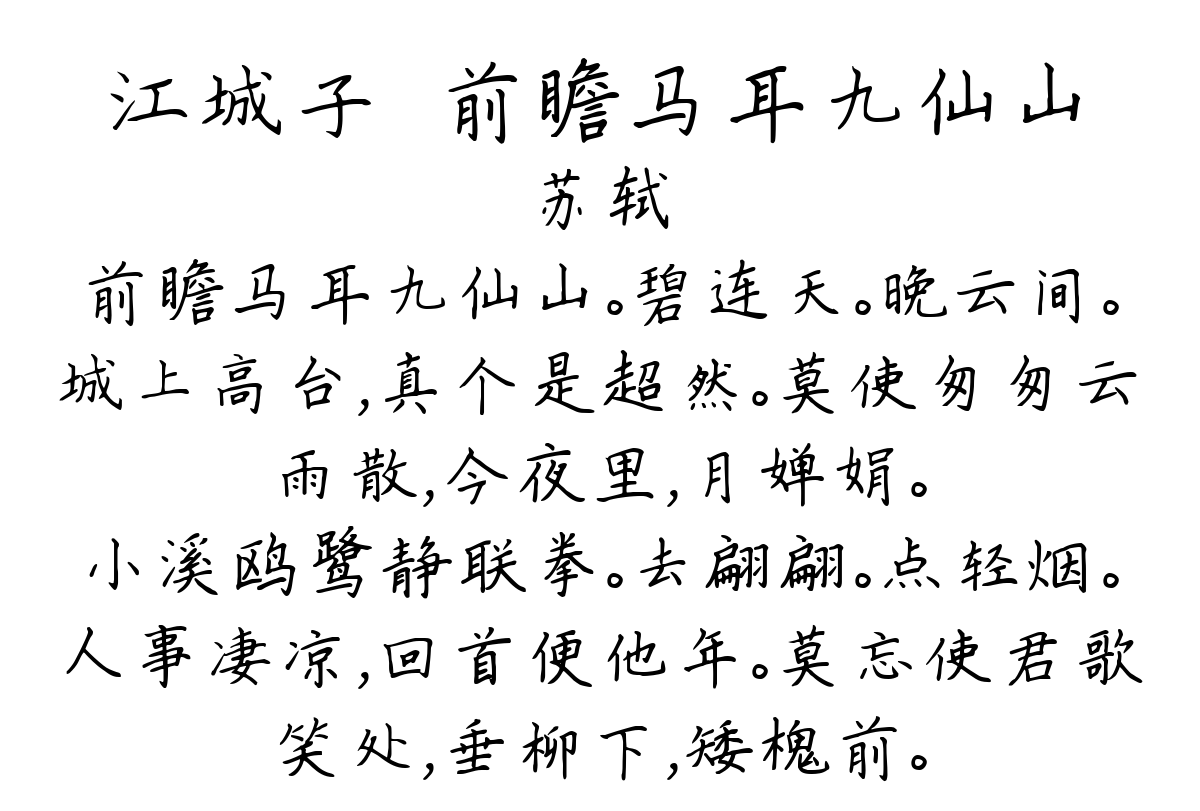 江城子 前瞻马耳九仙山
苏轼
前瞻马耳九仙山。碧连天。晚云间。
城上高台,真个是超然。莫使匆匆云
雨散,今夜里,月婵娟。
小溪鸥鹭静联拳。去翩翩。点轻烟。
人事凄凉,回首便他年。莫忘使君歌
笑处,垂柳下,矮槐前。